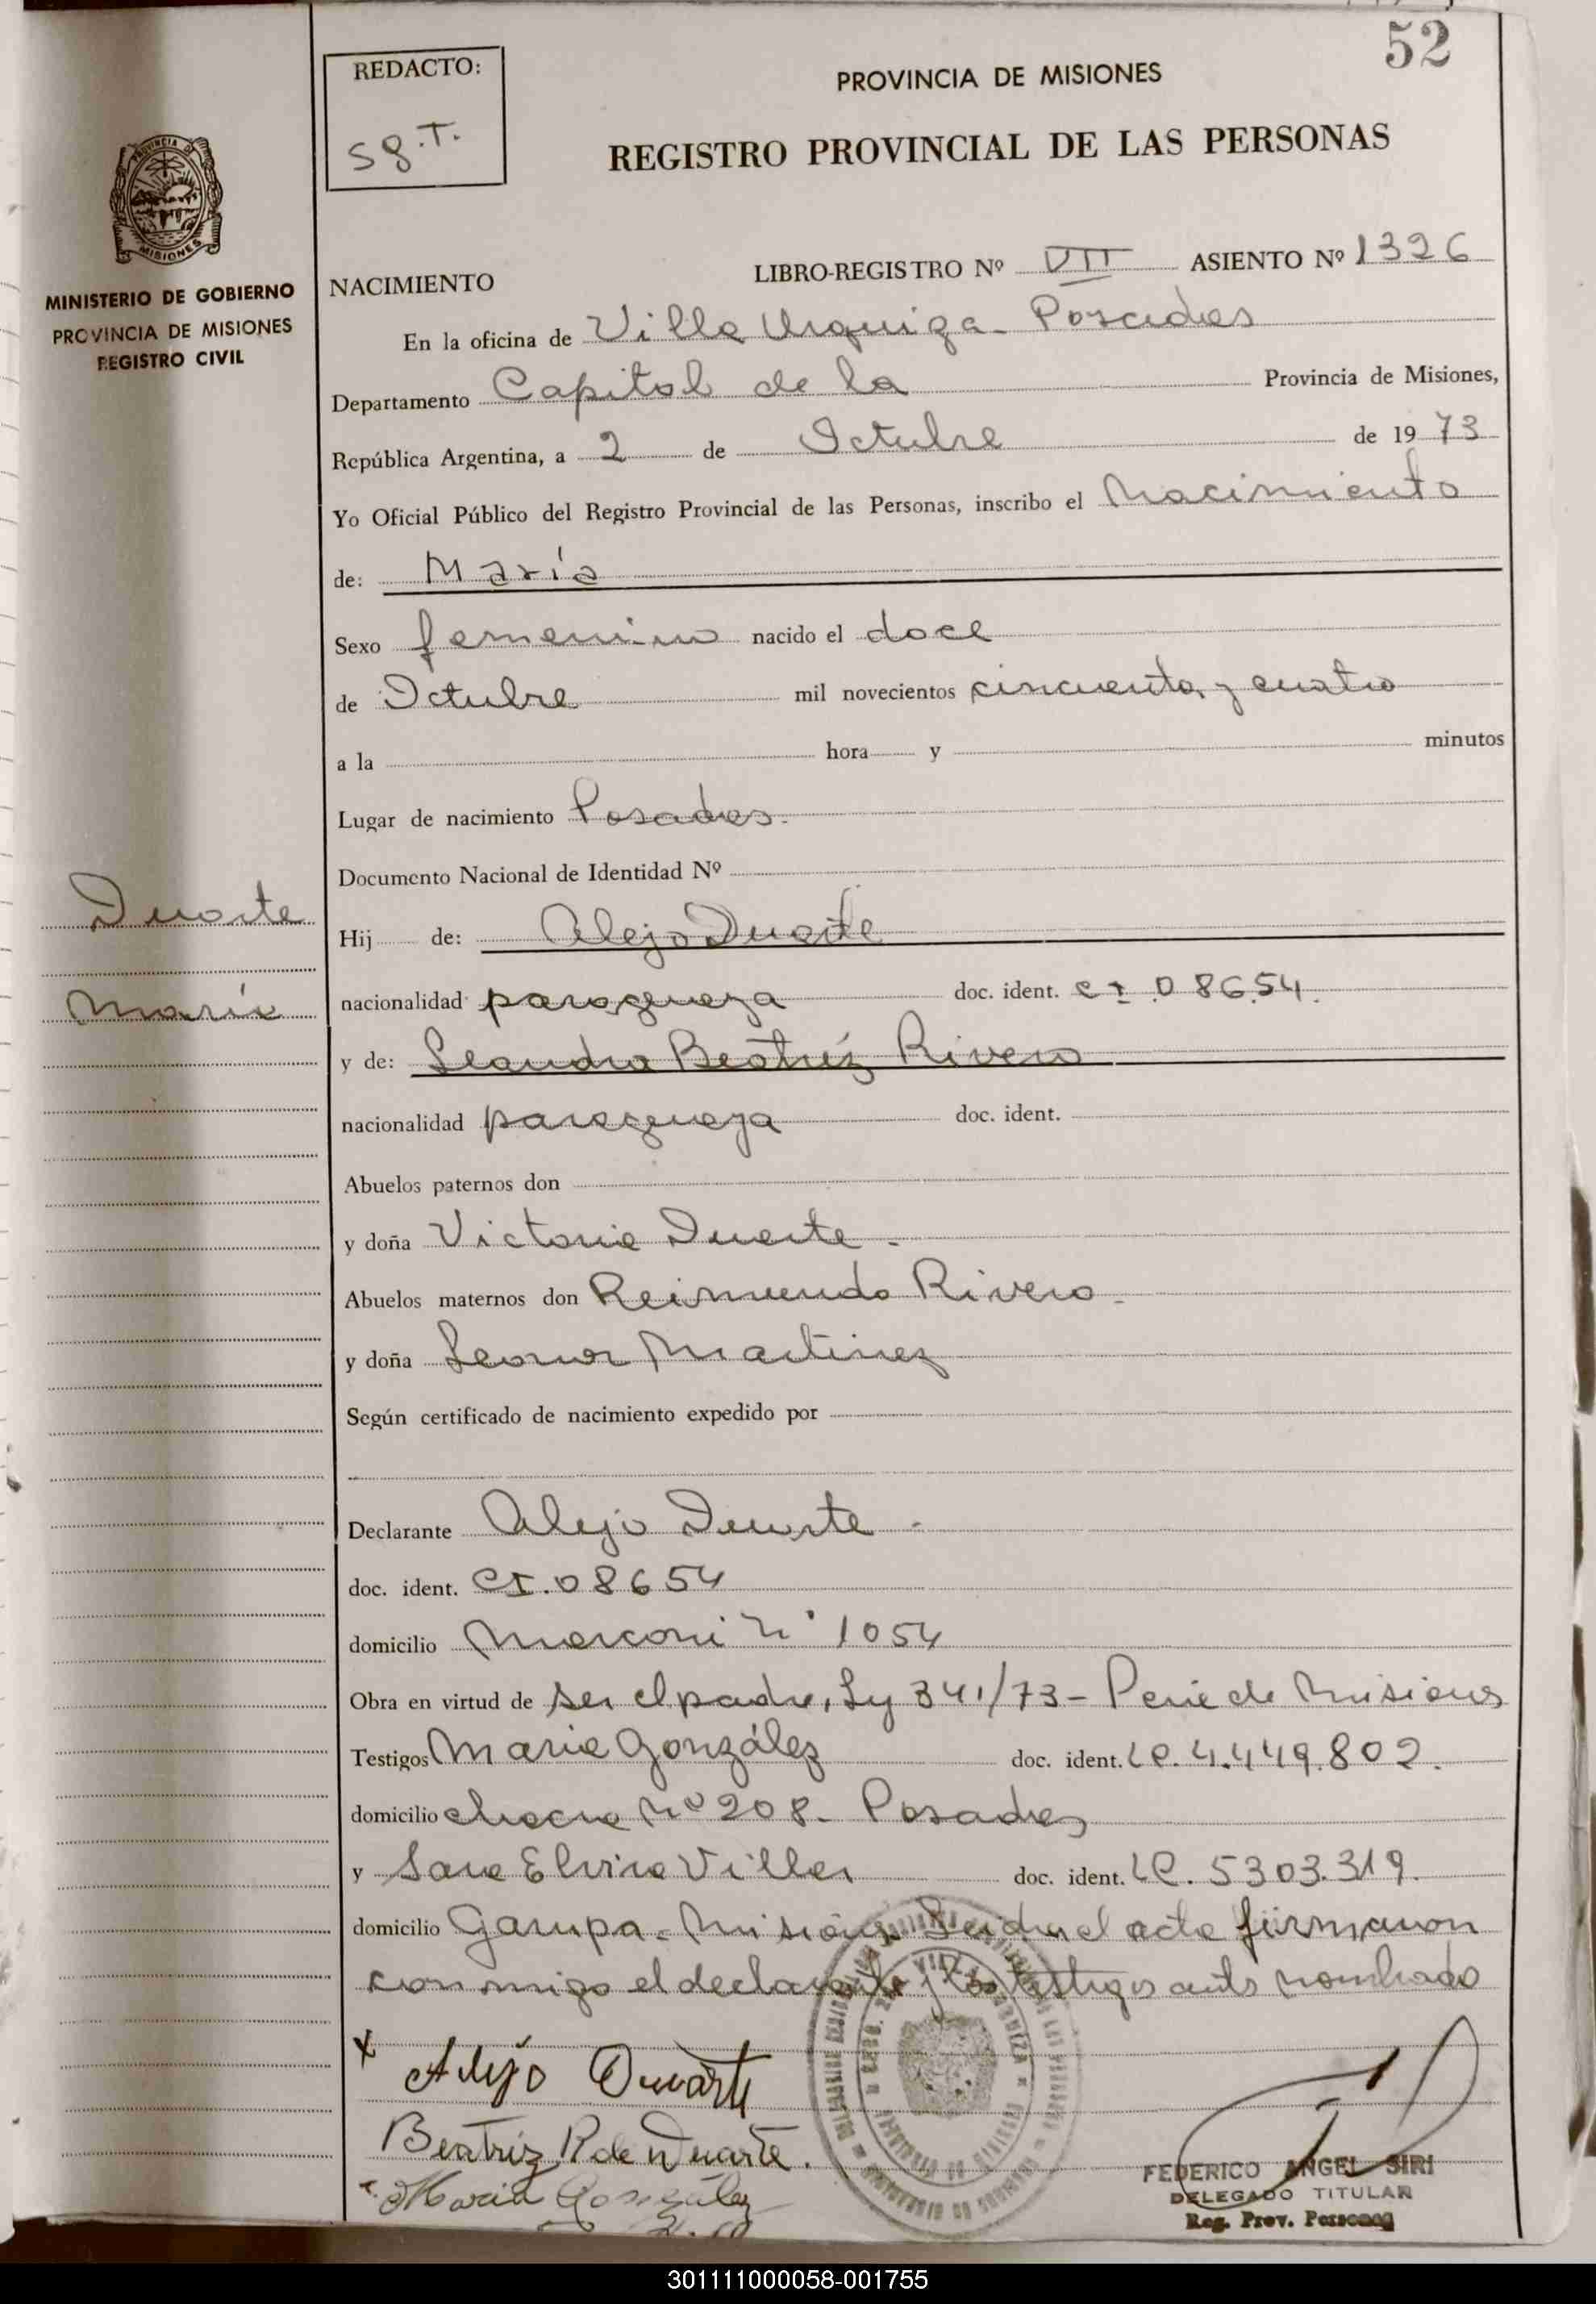 52
REDACTO:
S g. T.
PROVINCIA DE MISIONES
REGISTRO PROVINCIAL DE LAS PERSONAS
MISIONES
MINISTERIO DE GOBIERNO
PROVINCIA DE MISIONES
REGISTRO CIVIL
NACIMIENTO LIBRO-REGISTRO Nº VII ASIENTO Nº 1326
En la oficina de Villa Urquiza - Posadas
Departamento Capital de la Provincia de Misiones,
República Argentina, a 2 de Octubre de 19 73
Yo Oficial Público del Registro Provincial de las Personas, inscribo el Nacimiento
de: María
Sexo femenino nacido el doce
de Octubre mil novecientos cincuenta y cuatro
a la hora y minutos
Lugar de nacimiento Posadas.
Documento Nacional de Identidad Nº
Duarte
María
Hij de: Alejo Duarte
nacionalidad paraguaya doc. ident. CI.08654.
y de: Leandra Beatríz Rivero
nacionalidad paraguaya doc. ident.
Abuelos paternos don
y doña Victoria Duarte.
Abuelos maternos don Reimundo Rivero.
y doña Leonor Martinez
Según certificado de nacimiento expedido por
Declarante Alejo Duarte -
doc. ident. CI.08654
domicilio Marconi Nº 1054
Obra en virtud de ser el padre, Ley 341/73 - Pcia de Misiones
Testigos Maria González doc. ident. LC. 4.449.802.
domicilio chacra Nº 208. Posadas
y Sara Elvira Villar doc. ident. LC. 5303.319.
domicilio Garupa - Misiones. Leida el acta firmaron
conmigo el declarante y los testigos antes nombrado
x Alejo Duarte
Beatriz R de Duarte.
Maria González
FEDERICO ANGEL SIRI
DELEGADO TITULAR
Reg. Prov. Personas
301111000058-001755